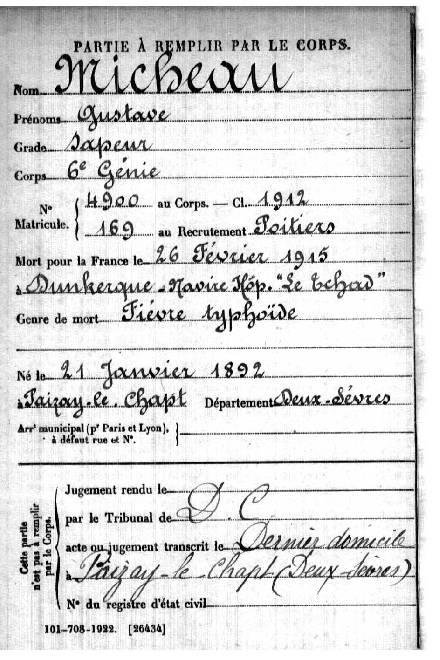 PARTIE À REMPLIR PAR LE CORPS.
Nom Micheau
Prénoms Gustave
Grade Sapeur
Corps 6e Génie
N° Matricule. { 4900 au Corps. — Cl. 1912
169 au Recrutement Poitiers
Mort pour la France le 26 Février 1915
à Dunkerque - Navire Hôp. "Le Tchad"
Genre de mort Fièvre typhoïde
Né le 21 Janvier 1892
à Paizay-le Chapt Département Deux-Sèvres
Arrt municipal (pr Paris et Lyon), à défaut rue et N°. }
Cette partie n'est pas à remplir par le Corps.
Jugement rendu le
par le Tribunal de D. C
acte ou jugement transcrit le Dernier domicile
à Paizay-le-Chapt (Deux-Sèvres)
N° du registre d'état civil
101-708-1922. [26434]